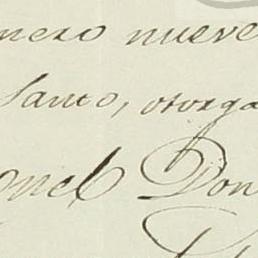 mero nueve
Santo, otorga
onel Don